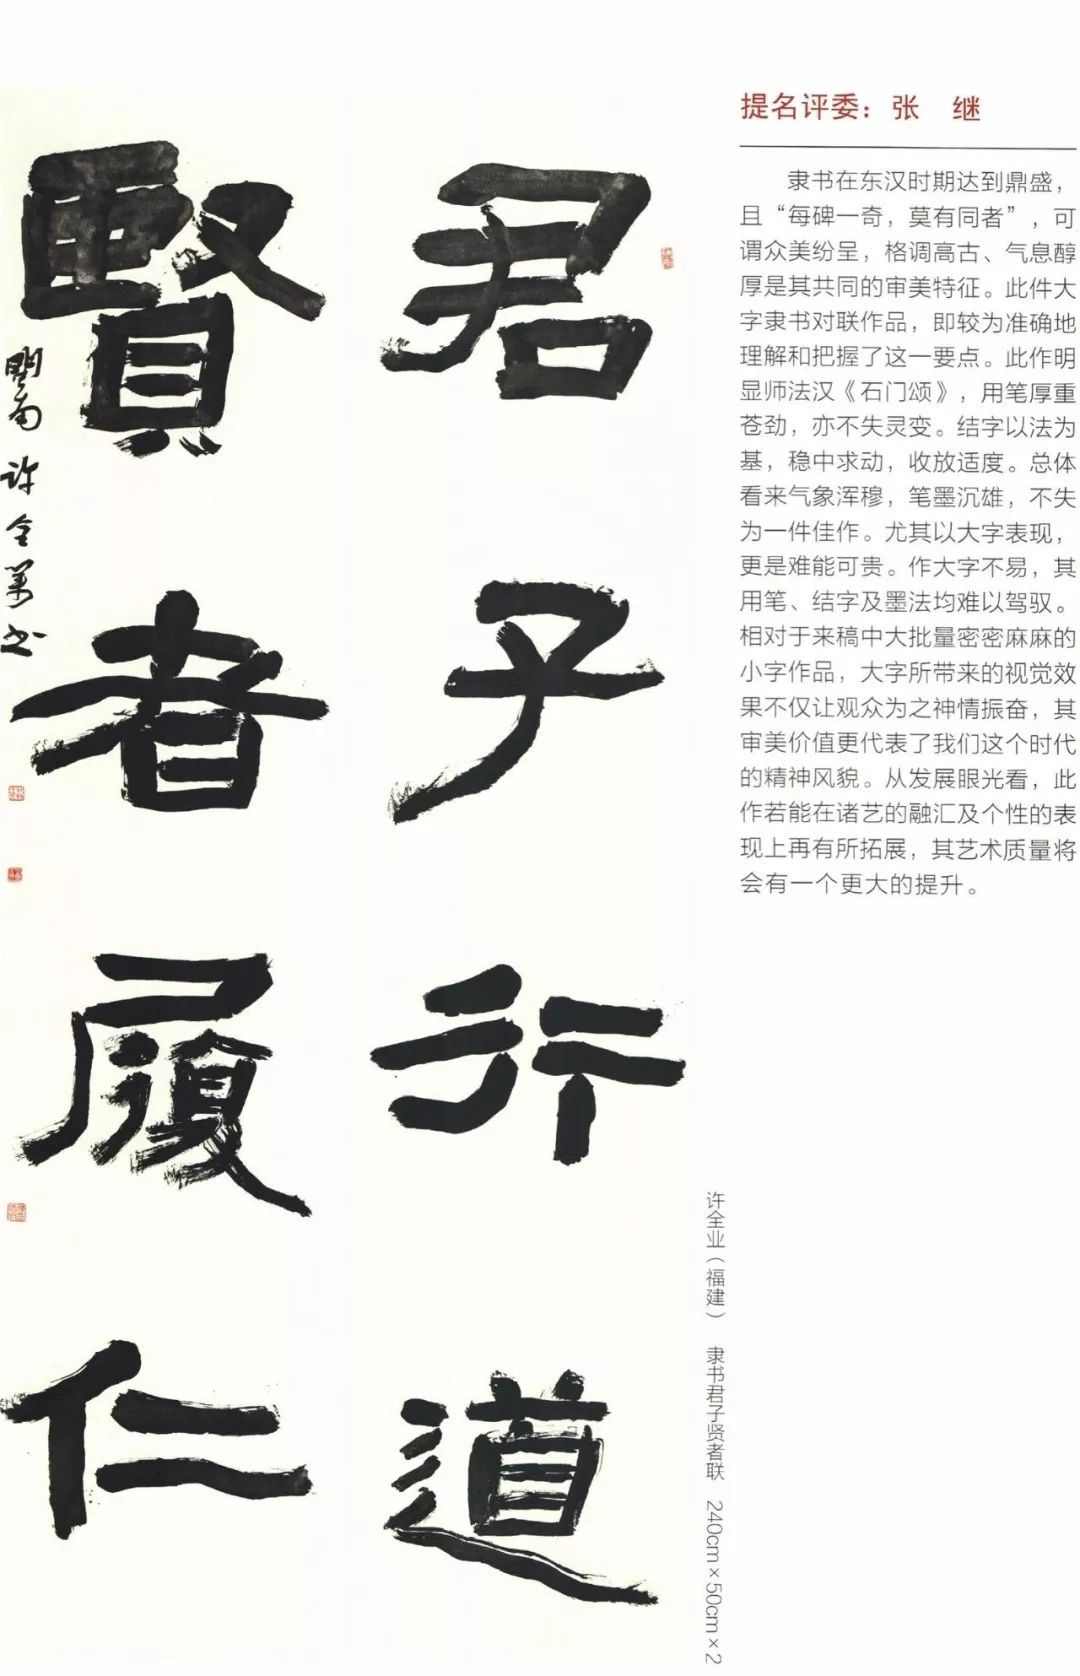 君子行道
賢者履仁
閩南许全業书
提名评委：张 继
隶书在东汉时期达到鼎盛，
且“每碑一奇，莫有同者”，可
谓众美纷呈，格调高古、气息醇
厚是其共同的审美特征。此件大
字隶书对联作品，即较为准确地
理解和把握了这一要点。此作明
显师法汉《石门颂》，用笔厚重
苍劲，亦不失灵变。结字以法为
基，稳中求动，收放适度。总体
看来气象浑穆，笔墨沉雄，不失
为一件佳作。尤其以大字表现，
更是难能可贵。作大字不易，其
用笔、结字及墨法均难以驾驭。
相对于来稿中大批量密密麻麻的
小字作品，大字所带来的视觉效
果不仅让观众为之神情振奋，其
审美价值更代表了我们这个时代
的精神风貌。从发展眼光看，此
作若能在诸艺的融汇及个性的表
现上再有所拓展，其艺术质量将
会有一个更大的提升。
许全业（福建） 隶书君子贤者联 240cm×50cm×2